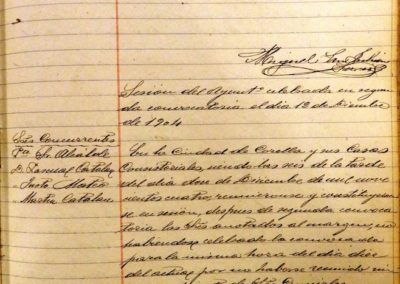 Miguel San Julián
Sesión del Ayuntº celebrada en segun
da convocatoria el día 12 de Diciembre
de 1904
Sres Concurrentes
Pte Sr. Alcalde
D. Pascual Catalán
Justo Mustia
Martín Catalán
En la Ciudad de Corella y sus Casas
Consistoriales, siendo las seis de la tarde
del día doce de Diciembre de mil nove
cientos cuatro, reunieronse y constituyeron
se en sesión, despues de segunda convoca
toria los Sres anotados al margen, no
habiendose celebrado la convocada
para la misma hora del día diez
del actual por no haberse reunido nú